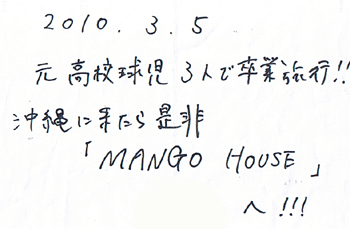 2010.3.5
元高校球児3人で卒業旅行!!
沖縄に来たら是非
「MANGO HOUSE」
へ!!!